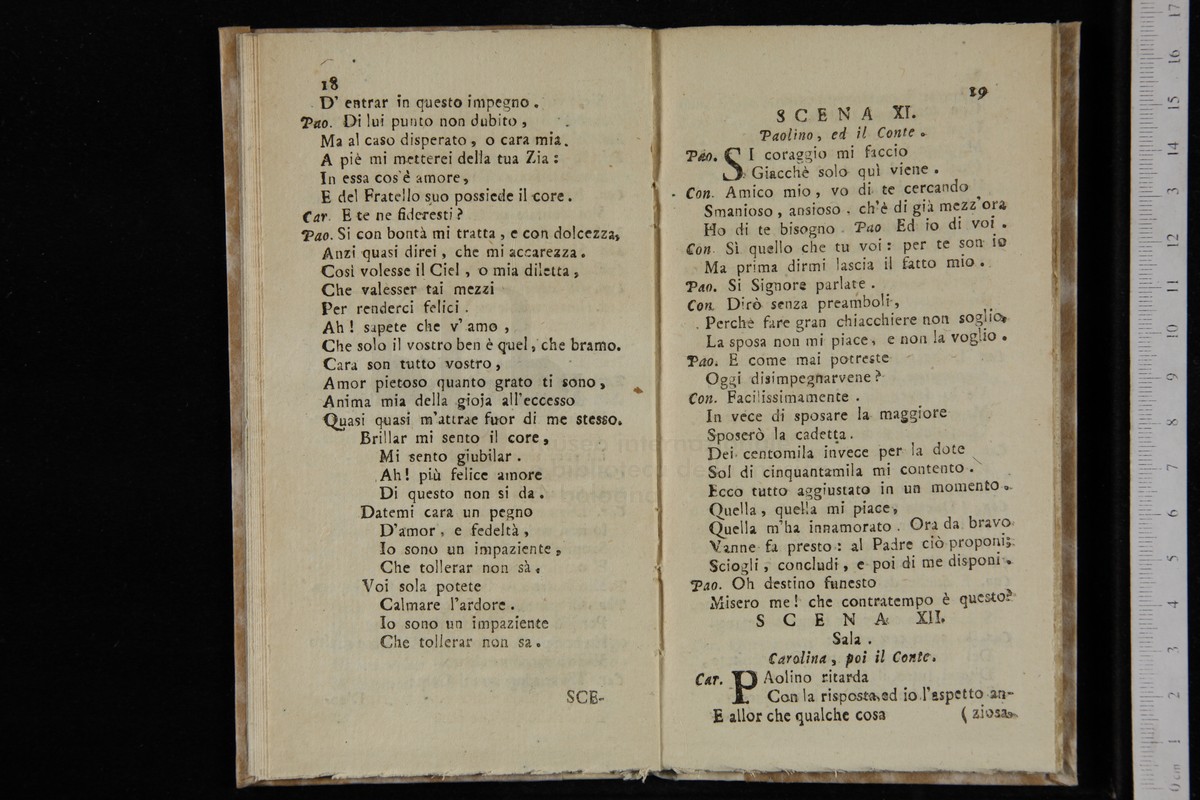 18
D' entrar in questo impegno .
Pao. Di lui punto non dubito ,
Ma al caso disperato , o cara mia.
A piè mi metterei della tua Zia :
In essa cos'è amore,
E del Fratello suo possiede il core .
Car. E te ne fideresti ?
Pao. Si con bontà mi tratta , e con dolcezza,
Anzi quasi direi , che mi accarezza .
Così volesse il Ciel , o mia diletta ,
Che valesser tai mezzi
Per renderci felici .
Ah ! sapete che v' amo ,
Che solo il vostro ben è quel, che bramo.
Cara son tutto vostro ,
Amor pietoso quanto grato ti sono ,
Anima mia della gioja all'eccesso
Quasi quasi m'attrae fuor di me stesso.
Brillar mi sento il core ,
Mi sento giubilar .
Ah! più felice amore
Di questo non si da .
Datemi cara un pegno
D'amor , e fedeltà ,
Io sono un impaziente ,
Che tollerar non sà .
Voi sola potete
Calmare l'ardore .
Io sono un impaziente
Che tollerar non sa .
SCE-
19
SCENA XI.
Paolino , ed il Conte .
Pao. SI coraggio mi faccio
Giacchè solo quì viene .
Con. Amico mio , vo di te cercando
Smanioso , ansioso , ch'è di già mezz'ora
Ho di te bisogno . Pao Ed io di voi .
Con. Sì quello che tu voi : per te son io
Ma prima dirmi lascia il fatto mio .
Pao. Si Signore parlate .
Con. Dirò senza preamboli ,
Perchè fare gran chiacchiere non soglio,
La sposa non mi piace , e non la voglio .
Pao. E come mai potreste
Oggi disimpegnarvene ?
Con. Facilissimamente .
In vece di sposare la maggiore
Sposerò la cadetta .
Dei centomila invece per la dote
Sol di cinquantamila mi contento .
Ecco tutto aggiustato in un momento .
Quella , quella mi piace ,
Quella m'ha innamorato . Ora da bravo
Vanne fa presto : al Padre ciò proponi ;
Sciogli , concludi , e poi di me disponi .
Pao. Oh destino funesto
Misero me ! che contratempo è questo?
SCENA XII.
Sala .
Carolina , poi il Conte .
Car. PAolino ritarda
Con la risposta, ed io l'aspetto an-
E allor che qualche cosa ( ziosa.